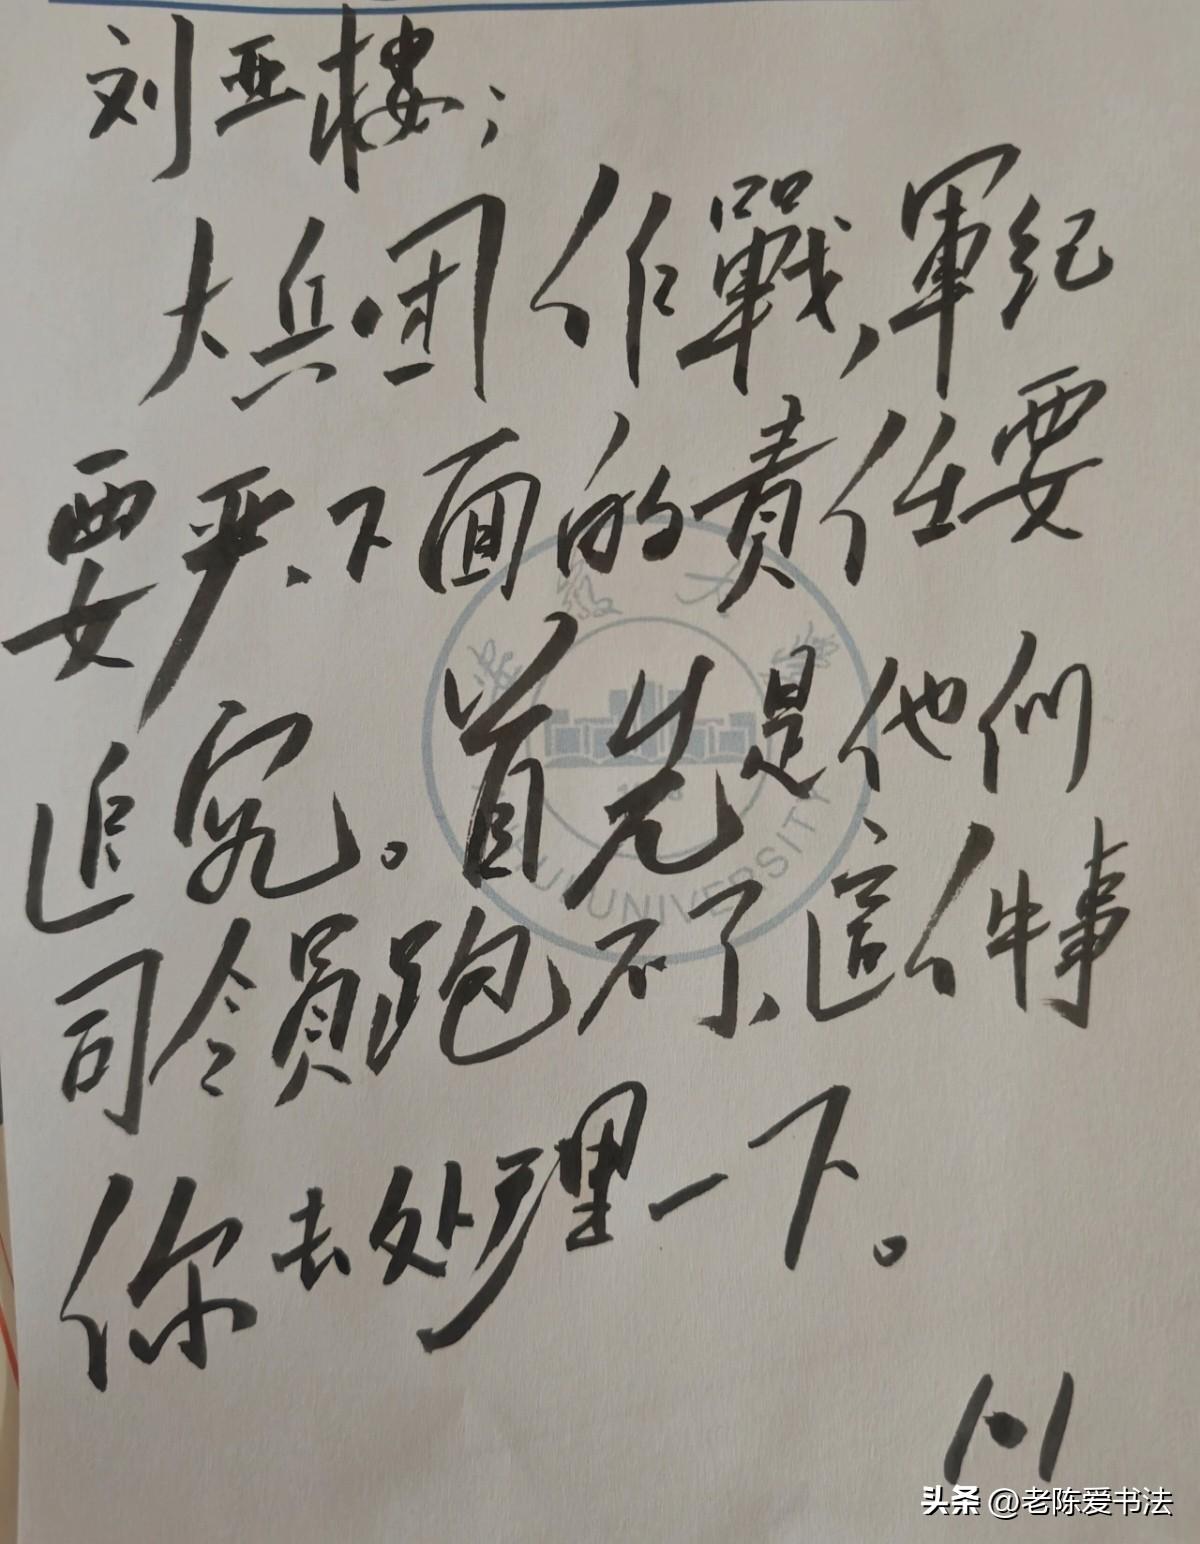 刘亚楼；
大兵团作戰，軍纪
要严、下面的责任要
追究。首先是他们
司令员跑不了、這件事
你去处理一下。
UNIVERSITY
头条 @老陈爱书法